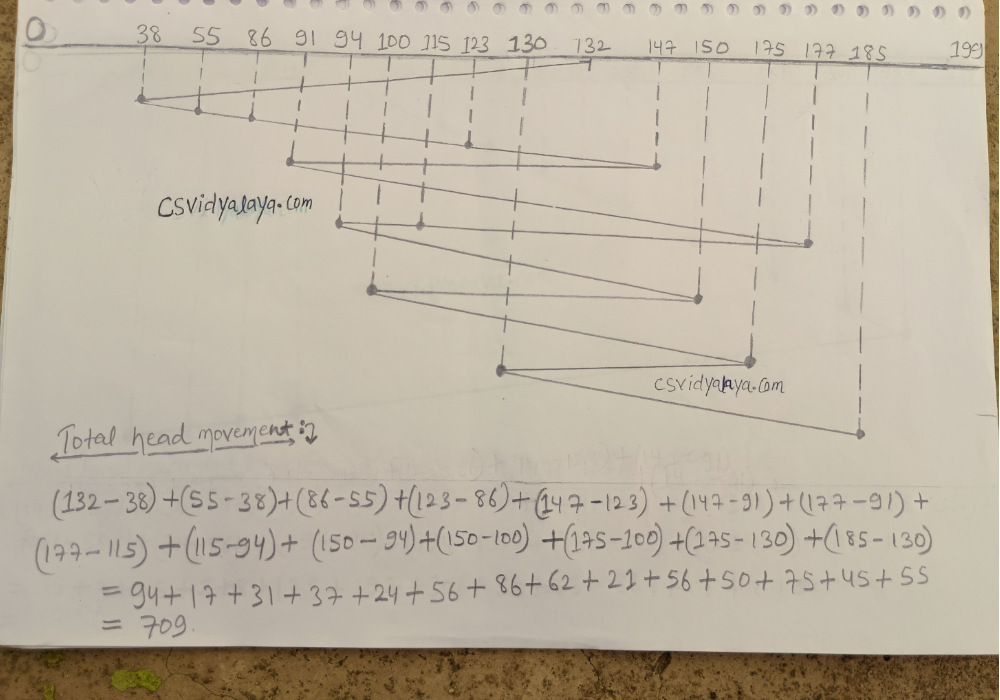 0 38 55 86 91 94 100 115 123 130 132 147 150 175 177 185 199
csvidyalaya.com
csvidyalaya.com
Total head movement:
(132-38)+(55-38)+(86-55)+(123-86)+(147-123)+(147-91)+(177-91)+
(177-115)+(115-94)+(150-94)+(150-100)+(175-100)+(175-130)+(185-130)
= 94+17+31+37+24+56+86+62+21+56+50+75+45+55
= 709.